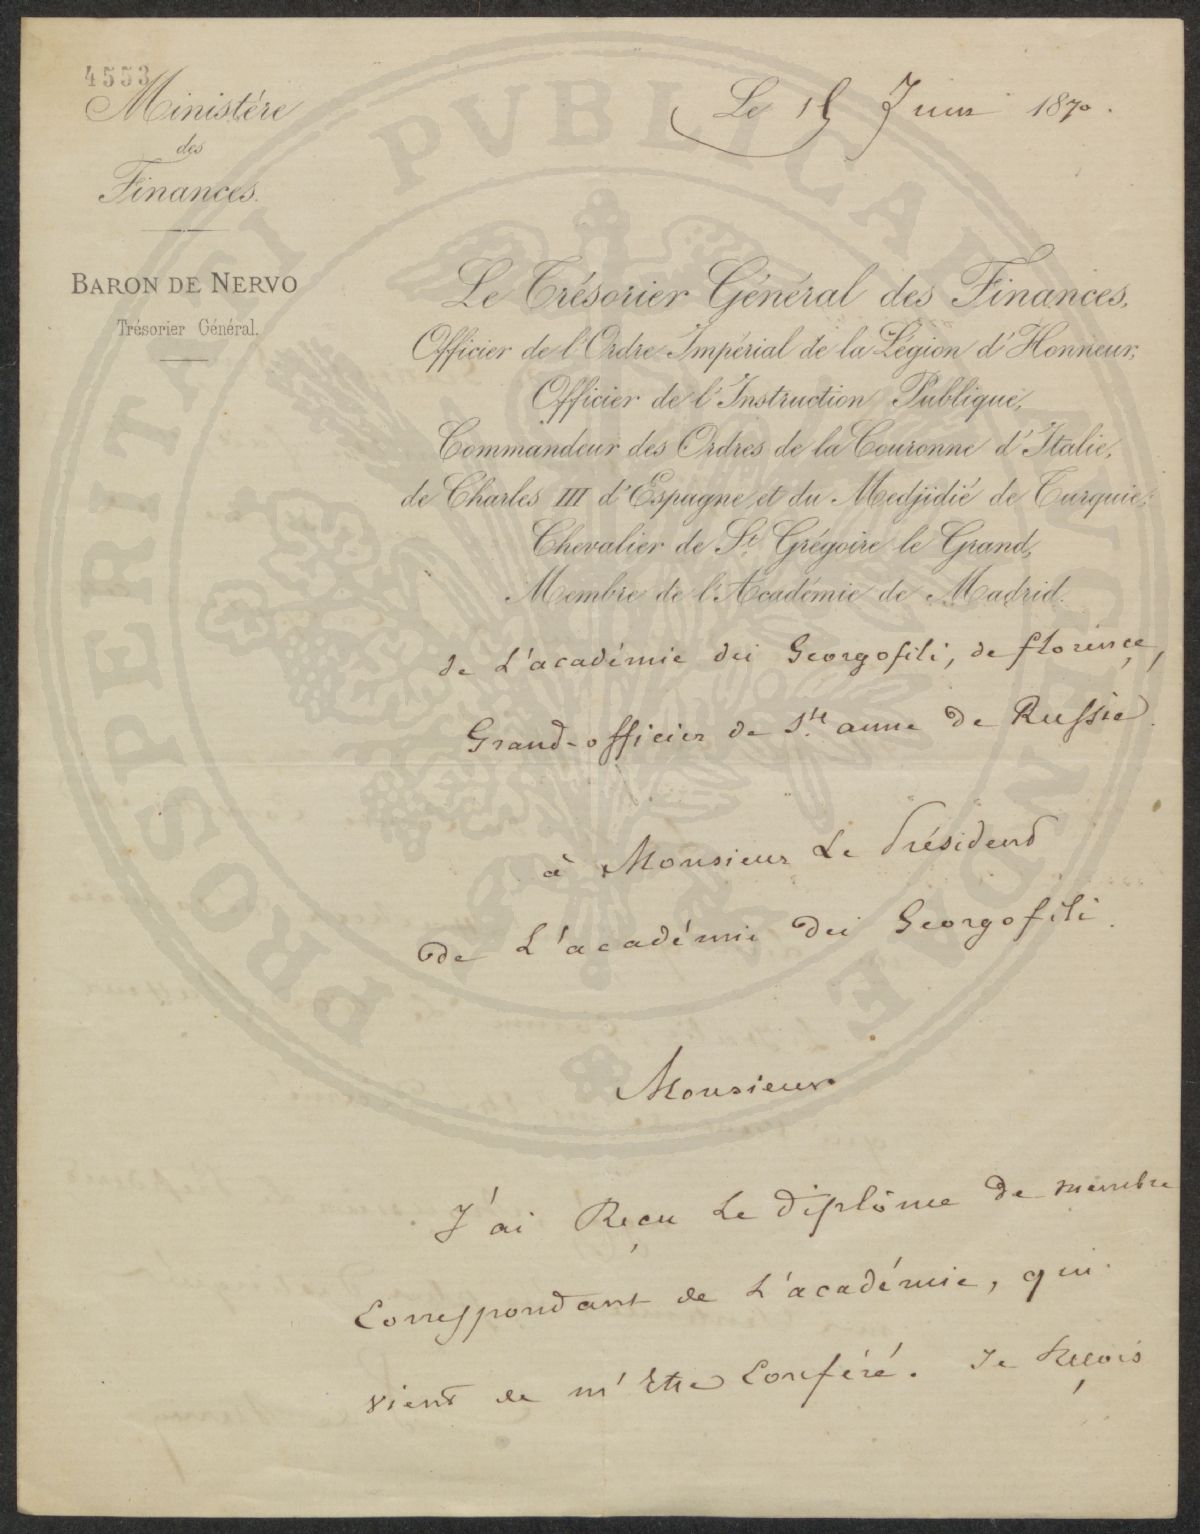 4553
Ministère
des
Finances.
BARON DE NERVO
Trésorier Général.
Le 15 Juin 1870.
Le Trésorier Général des Finances,
Officier de l'Ordre Impérial de la Légion d'Honneur,
Officier de l'Instruction Publique,
Commandeur des Ordres de la Couronne d'Italie,
de Charles III d'Espagne, et du Medjidié de Turquie;
Chevalier de St. Grégoire le Grand,
Membre de l'Académie de Madrid.
de L'académie dei Georgofili, de florençe,
Grand-officier de Ste. anne de Russie.
à Monsieur Le Président
de L'académie dei Georgofili.
Monsieur
J'ai Reçu Le diplôme de membre
Correspondant de L'académie, qui
vient de m'Etre Conféré. Je Reçois
PROSPERITATI PVBLICAE AVGENDAE